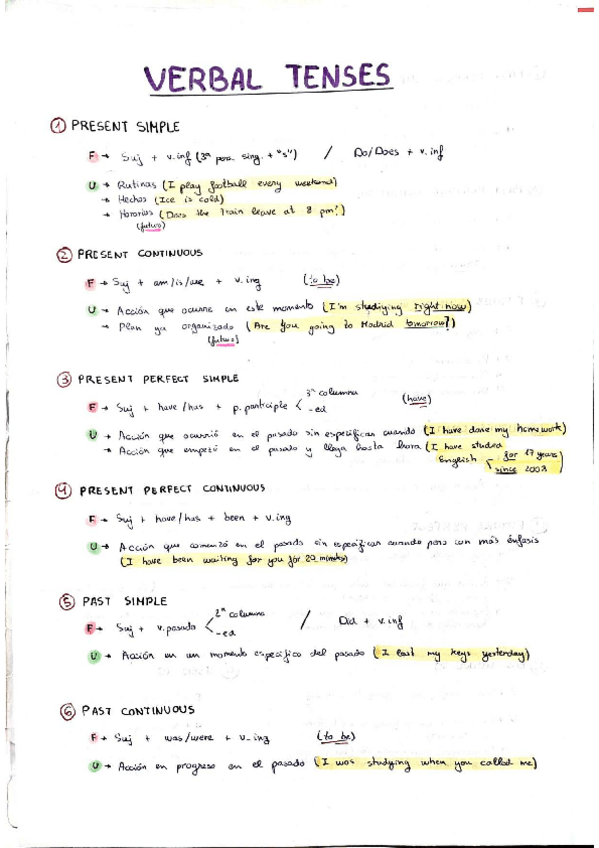 VERBAL TENSES
① PRESENT SIMPLE
F → Suj + v.inf (3ª pers. sing. + "s") / Do/Does + v.inf
U → Rutinas (I play football every weekend)
→ Hechos (Ice is cold)
→ Horarios (Does the train leave at 8 pm?)
(futuro)
② PRESENT CONTINUOUS
F → Suj + am/is/are + v.ing (to be)
U → Acción que ocurre en este momento (I'm studiying right now)
→ Plan ya organizado (Are you going to Madrid tomorrow?)
(futuro)
③ PRESENT PERFECT SIMPLE
3ª columna
F → Suj + have/has + p. participle < -ed (have)
U → Acción que ocurrió en el pasado sin especificar cuando (I have done my homework)
→ Acción que empezó en el pasado y llega hasta hora (I have studied
English for 17 years
since 2003)
④ PRESENT PERFECT CONTINUOUS
F → Suj + have/has + been + v.ing
U → Acción que comenzó en el pasado sin especificar cuando pero con más énfasis
(I have been waiting for you for 20 minutes)
⑤ PAST SIMPLE
2ª columna
F → Suj + v.pasado < -ed / Did + v.inf
U → Acción en un momento específico del pasado (I lost my keys yesterday)
⑥ PAST CONTINUOUS
F → Suj + was/were + v_ing (to be)
U → Acción en progreso en el pasado (I was studying when you called me)